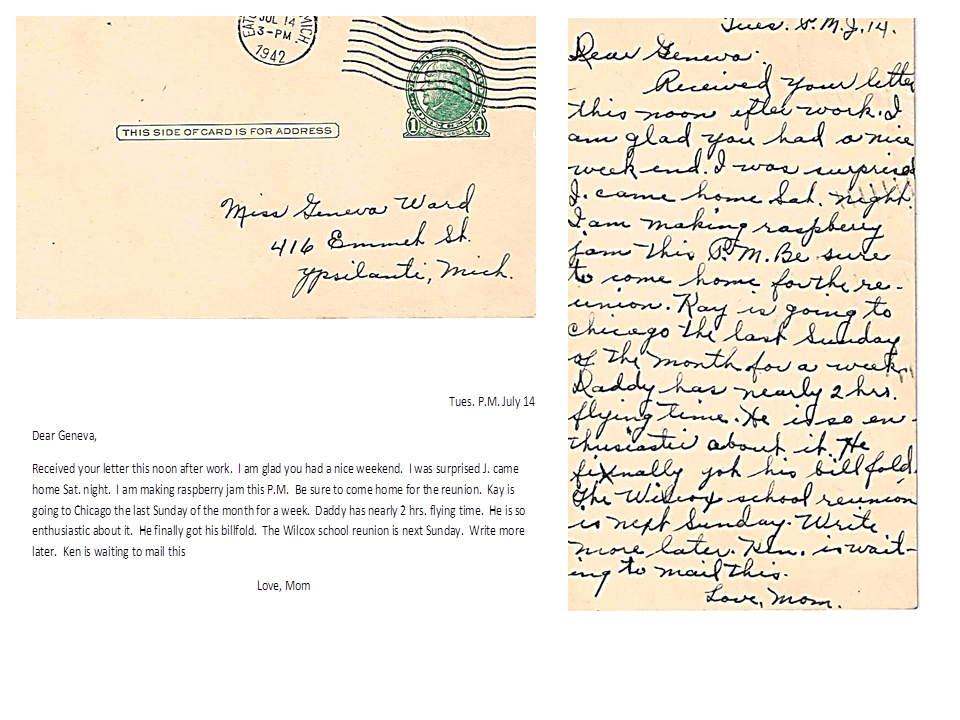 EAT
JUL 14
3-PM
1942
MICH.
1 1
THIS SIDE OF CARD IS FOR ADDRESS
Miss Geneva Ward
416 Emmet St.
Ypsilanti, Mich.
Tues. P.M. July 14
Dear Geneva,
Received your letter this noon after work. I am glad you had a nice weekend. I was surprised J. came
home Sat. night. I am making raspberry jam this P.M. Be sure to come home for the reunion. Kay is
going to Chicago the last Sunday of the month for a week. Daddy has nearly 2 hrs. flying time. He is so
enthusiastic about it. He finally got his billfold. The Wilcox school reunion is next Sunday. Write more
later. Ken is waiting to mail this
Love, Mom
Tues. P.M. J. 14.
Dear Geneva:
Received your letter
this noon after work. I
am glad you had a nice
week end. I was surprised
J. came home Sat. night.
I am making raspberry
jam this P.M. Be sure
to come home for the re-
union. Kay is going to
Chicago the last Sunday
of the month for a week.
Daddy has nearly 2 hrs.
flying time. He is so en-
thusiastic about it. He
finally got his billfold.
The Wilcox school reunion
is next Sunday. Write
more later. Ken. is wait-
ing to mail this.
Love, Mom.